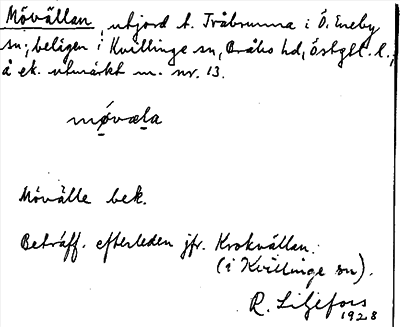 Mövällan, utjord t. Tvåbrunna i Ö. Eneby
sn; belägen i Kvillinge sn, Bråbo hd, Östgtl. l.;
å ek. utmärkt m. nr. 13.
mǫ́væla
Mövälle bek.
Beträff. efterleden jfr. Krokvällan.
(i Kvillinge sn).
R. Liljefors
1928